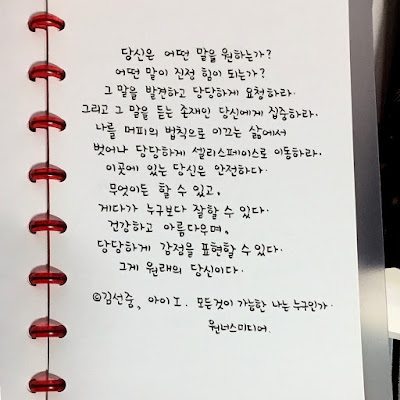 당신은 어떤 말을 원하는가?
어떤 말이 진정 힘이 되는가?
그 말을 발견하고 당당하게 요청하라.
그리고 그 말을 듣는 존재인 당신에게 집중하라.
나를 머피의 법칙으로 이끄는 삶에서
벗어나 당당하게 셀리스페이스로 이동하라.
이곳에 있는 당신은 안전하다.
무엇이든 할 수 있고,
게다가 누구보다 잘할 수 있다.
건강하고 아름다우며,
당당하게 감정을 표현할 수 있다.
그게 원래의 당신이다.
©김선중, 아이 I. 모든것이 가능한 나는 누구인가.
원너스미디어.